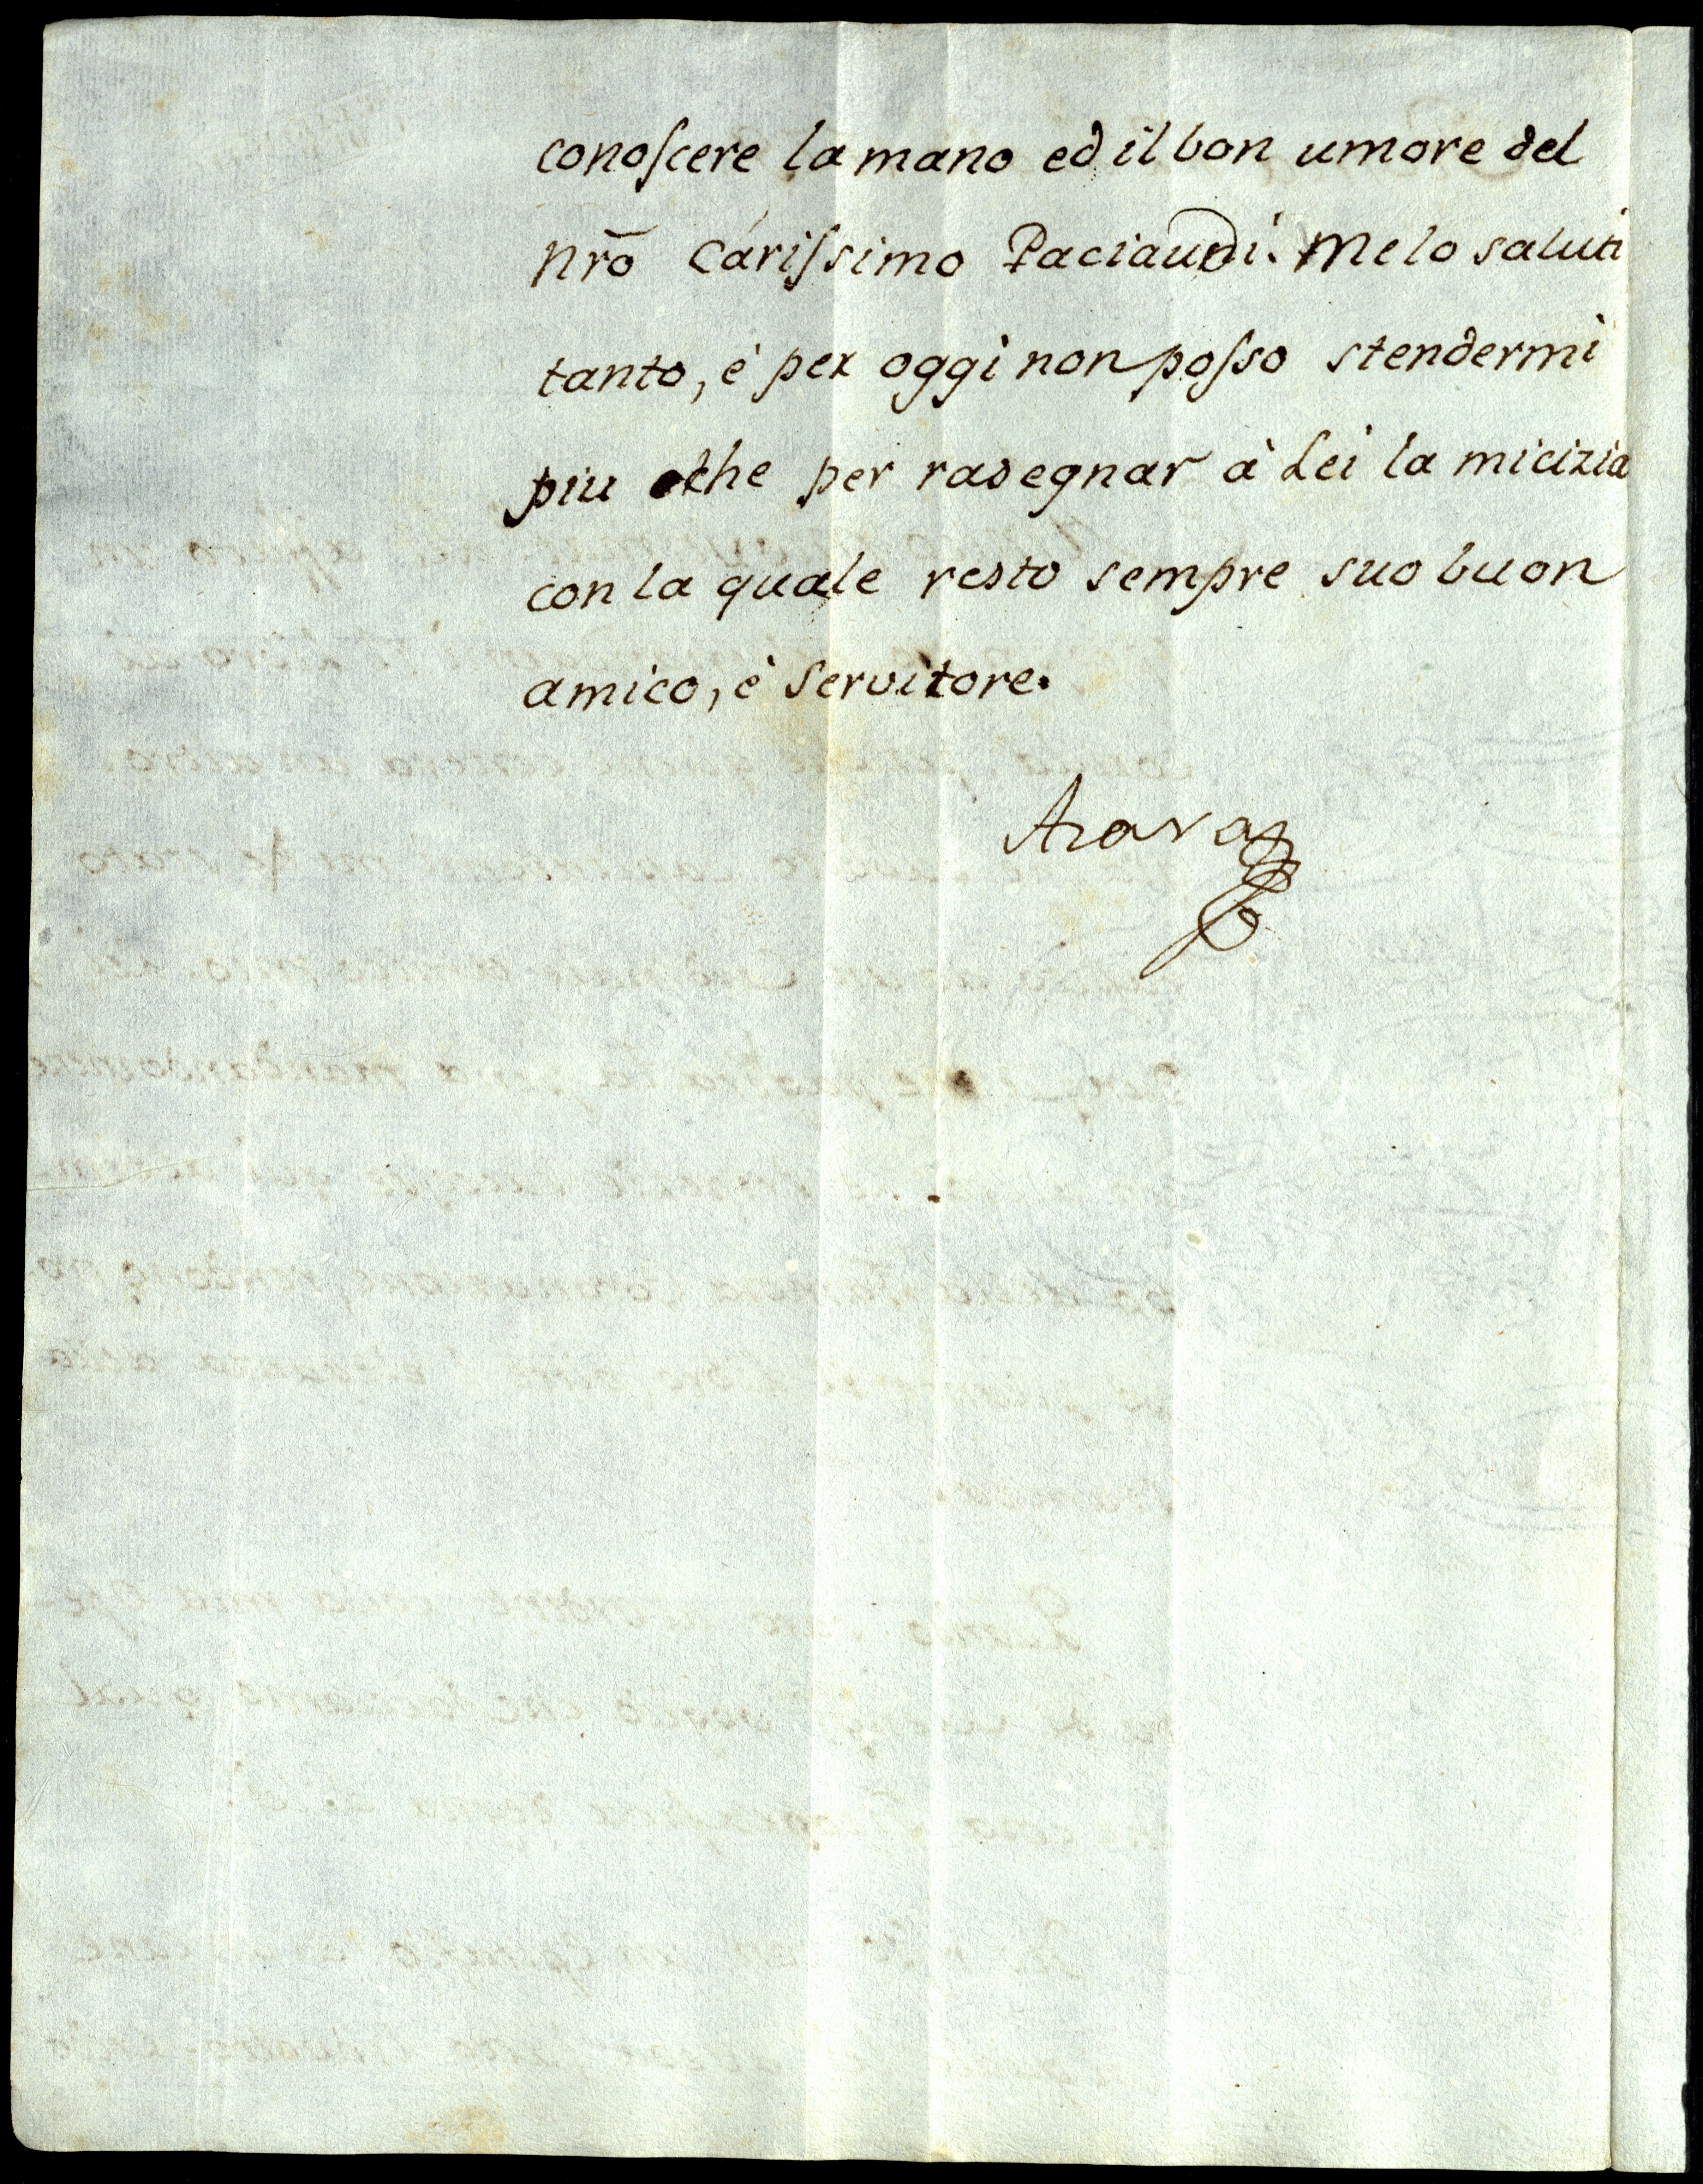 conoſcere la mano ed il bon umore del
nr̄o cariſsimo Paciaudi. Me lo saluti
tanto, è per oggi non poſso stendermi
piu che per rasegnar à Lei la micizia
con la quale resto sempre suo buon
amico, è Servitore.
Azara